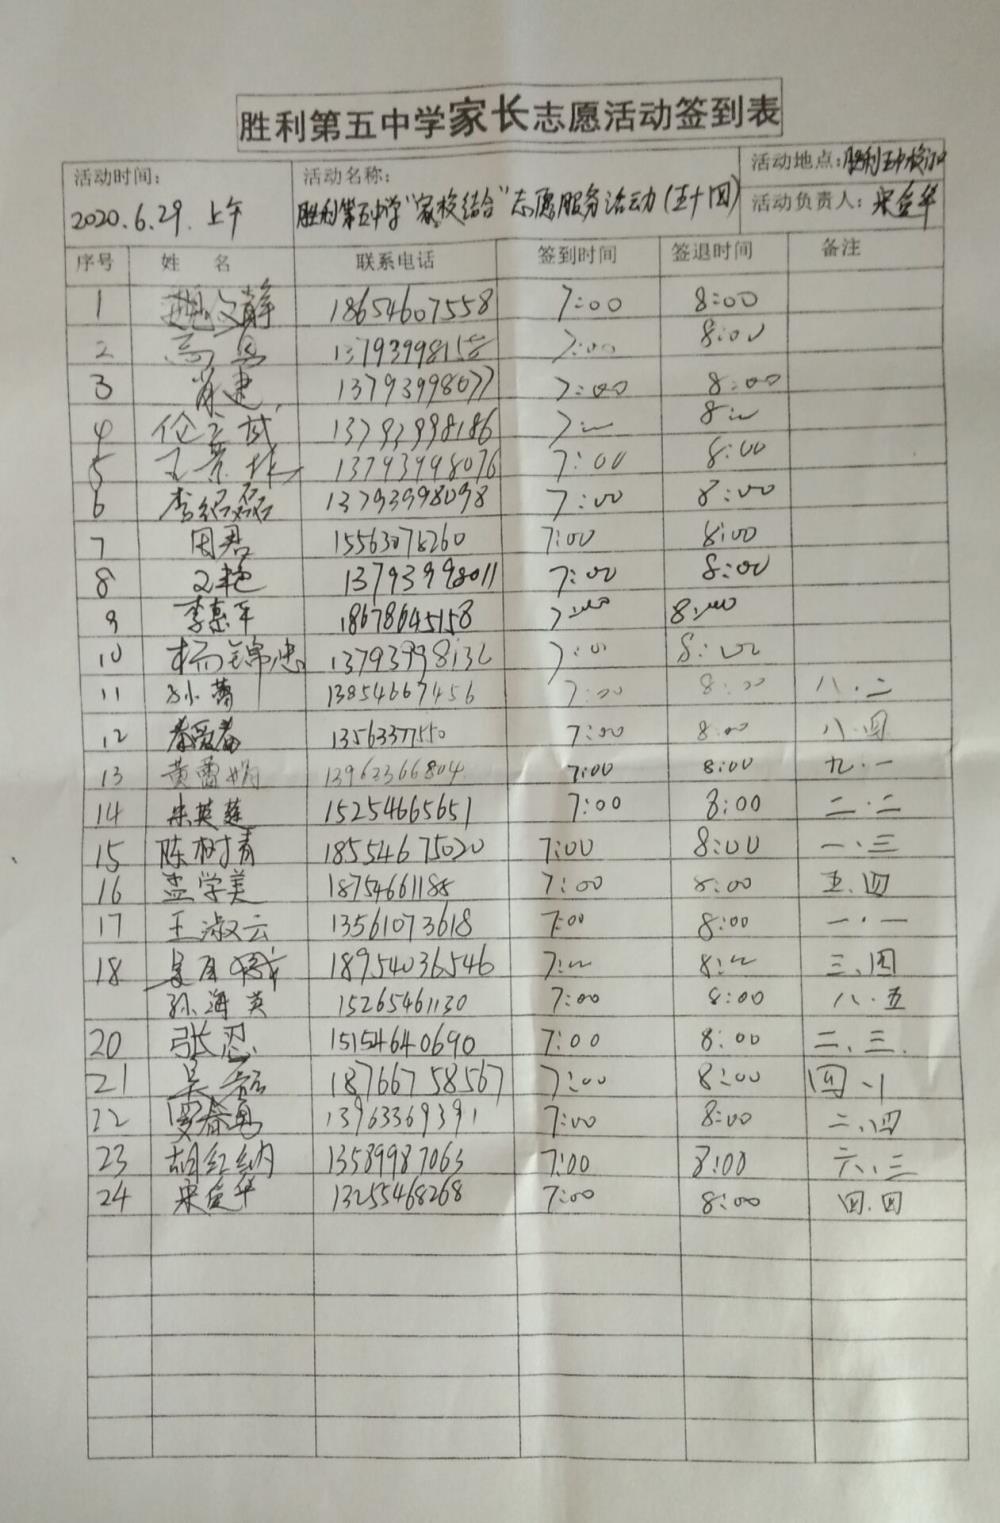 胜利第五中学家长志愿活动签到表
活动时间: 2020.6.29.上午
活动名称: 胜利第五中学"家校结合"志愿服务活动(五十四)
活动地点: 胜利五中校门口
活动负责人: 宋俊华
序号 姓名 联系电话 签到时间 签退时间 备注
1 18654607558 7:00 8:00
2 7:00 8:00
3 肖建 13793998077 7:00 8:00
4 13793998186 7:00 8:00
5 13793998076 7:00 8:00
6 李绍磊 13793998098 7:00 8:00
7 周君 15563078260 7:00 8:00
8 13793998011 7:00 8:00
9 李惠军 18678645158 7:00 8:00
10 杨锦忠 13793998132 7:00 8:00
11 孙小蕾 13854667456 7:00 8:00 八.二
12 7:00 8:00 八.四
13 黄蕾娟 13962366804 7:00 8:00 九.一
14 宋英莲 15254665651 7:00 8:00 二.二
15 陈树青 18554675020 7:00 8:00 一.三
16 孟学美 18754661188 7:00 8:00 五.四
17 王淑云 13561073618 7:00 8:00 一.一
18 18954036546 7:00 8:00 三.四
孙海英 15265461130 7:00 8:00 八.五
20 张忍 15154640690 7:00 8:00 二.三.
21 吴磊 18766758567 7:00 8:00 四.1
22 13963369391 7:00 8:00 二.四
23 胡红纳 13589987063 7:00 8:00 六.三
24 宋俊华 13255468268 7:00 8:00 四.四